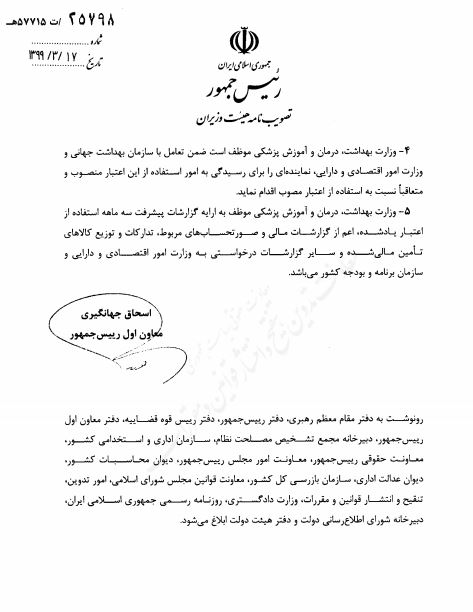 ۲۵۷۹۸ / ت ۵۷۷۱۵هـ
شماره
تاریخ ۱۳۹۹/۳/۱۷
جمهوری اسلامی ایران
رئیس جمهور
تصویب نامه هیئت وزیران
۴- وزارت بهداشت، درمان و آموزش پزشکی موظف است ضمن تعامل با سازمان بهداشت جهانی و
وزارت امور اقتصادی و دارایی، نماینده‌ای را برای رسیدگی به امور استفاده از این اعتبار منصوب و
متعاقباً نسبت به استفاده از اعتبار مصوب اقدام نماید.
۵- وزارت بهداشت، درمان و آموزش پزشکی موظف به ارایه گزارشات پیشرفت سه ماهه استفاده از
اعتبار یادشده، اعم از گزارشات مالی و صورتحساب‌های مربوط، تدارکات و توزیع کالاهای
تأمین مالی‌شده و سایر گزارشات درخواستی به وزارت امور اقتصادی و دارایی و
سازمان برنامه و بودجه کشور می‌باشد.
اسحاق جهانگیری
معاون اول رییس‌جمهور
رونوشت به دفتر مقام معظم رهبری، دفتر رییس‌جمهور، دفتر رییس قوه قضاییه، دفتر معاون اول
رییس‌جمهور، دبیرخانه مجمع تشخیص مصلحت نظام، سازمان اداری و استخدامی کشور،
معاونت حقوقی رییس‌جمهور، معاونت امور مجلس رییس‌جمهور، دیوان محاسبات کشور،
دیوان عدالت اداری، سازمان بازرسی کل کشور، معاونت قوانین مجلس شورای اسلامی، امور تدوین،
تنقیح و انتشار قوانین و مقررات، وزارت دادگستری، روزنامه رسمی جمهوری اسلامی ایران،
دبیرخانه شورای اطلاع‌رسانی دولت و دفتر هیئت دولت ابلاغ می‌شود.